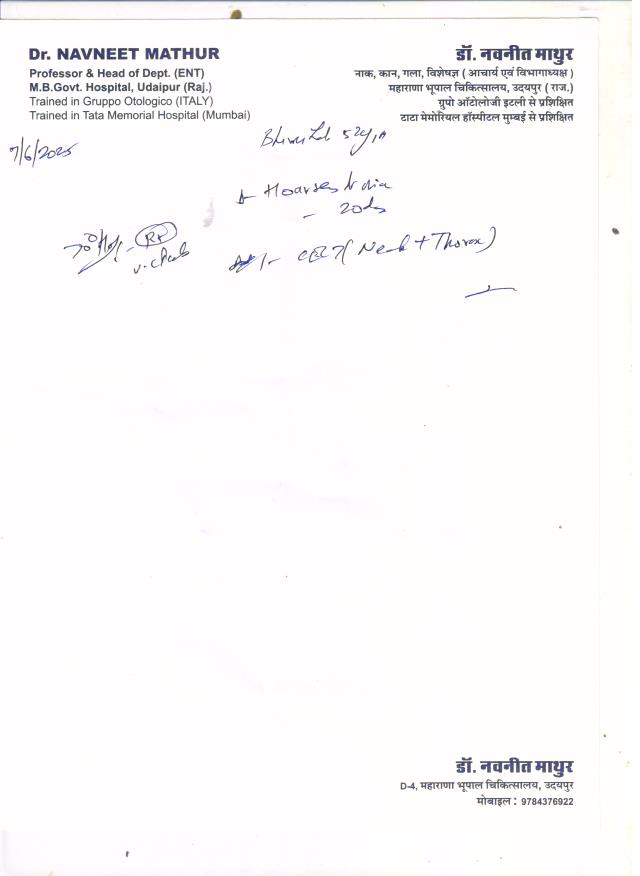 Dr. NAVNEET MATHUR
Professor & Head of Dept. (ENT)
M.B.Govt. Hospital, Udaipur (Raj.)
Trained in Gruppo Otologico (ITALY)
Trained in Tata Memorial Hospital (Mumbai)
डॉ. नवनीत माथुर
नाक, कान, गला, विशेषज्ञ ( आचार्य एवं विभागाध्यक्ष )
महाराणा भूपाल चिकित्सालय, उदयपुर ( राज.)
ग्रुपो ऑटोलोजी इटली से प्रशिक्षित
टाटा मेमोरियल हॉस्पीटल मुम्बई से प्रशिक्षित
7/6/2025
52y
Hoarseness
- 20ds
(Neck + Thorax)
डॉ. नवनीत माथुर
D-4, महाराणा भूपाल चिकित्सालय, उदयपुर
मोबाइल : 9784376922